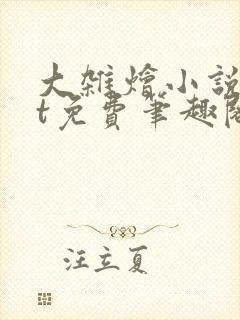 大雜燴小說
t免費筆趣閣
汪立夏